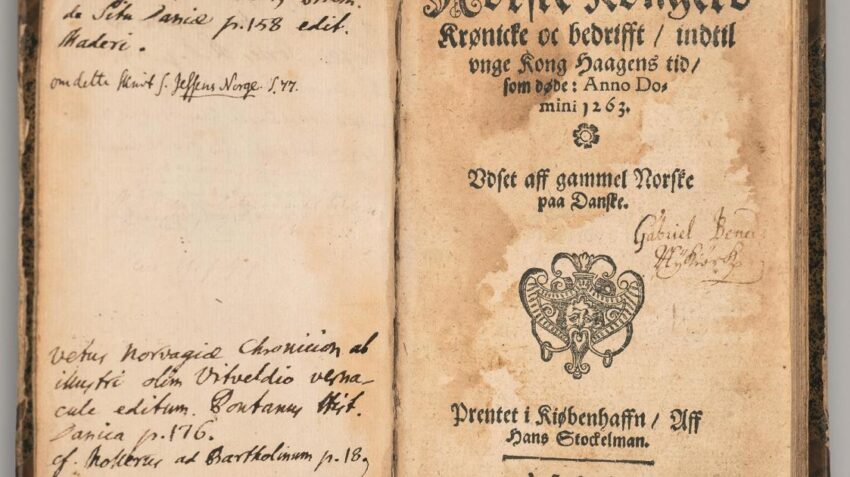 de Situ Daniæ p. 158 edit.
Maderi.
om dette Skrift s. Jessens Norge. S. 77.
Vetus Norvagiæ Chronicion ab
illustri olim Vitveldio verna-
cule editum. Pontanus Hist.
Danica p. 176.
cf. Mollerus ad Bartholinum p. 18
Norske Kongers
Krønicke oc bedrifft / indtil
vnge Kong Haagens tid /
som døde: Anno Do-
mini 1263.
Vdset aff gammel Norske
paa Danske.
Gabriel
Prentet i Kiøbenhaffn / Aff
Hans Stockelman.